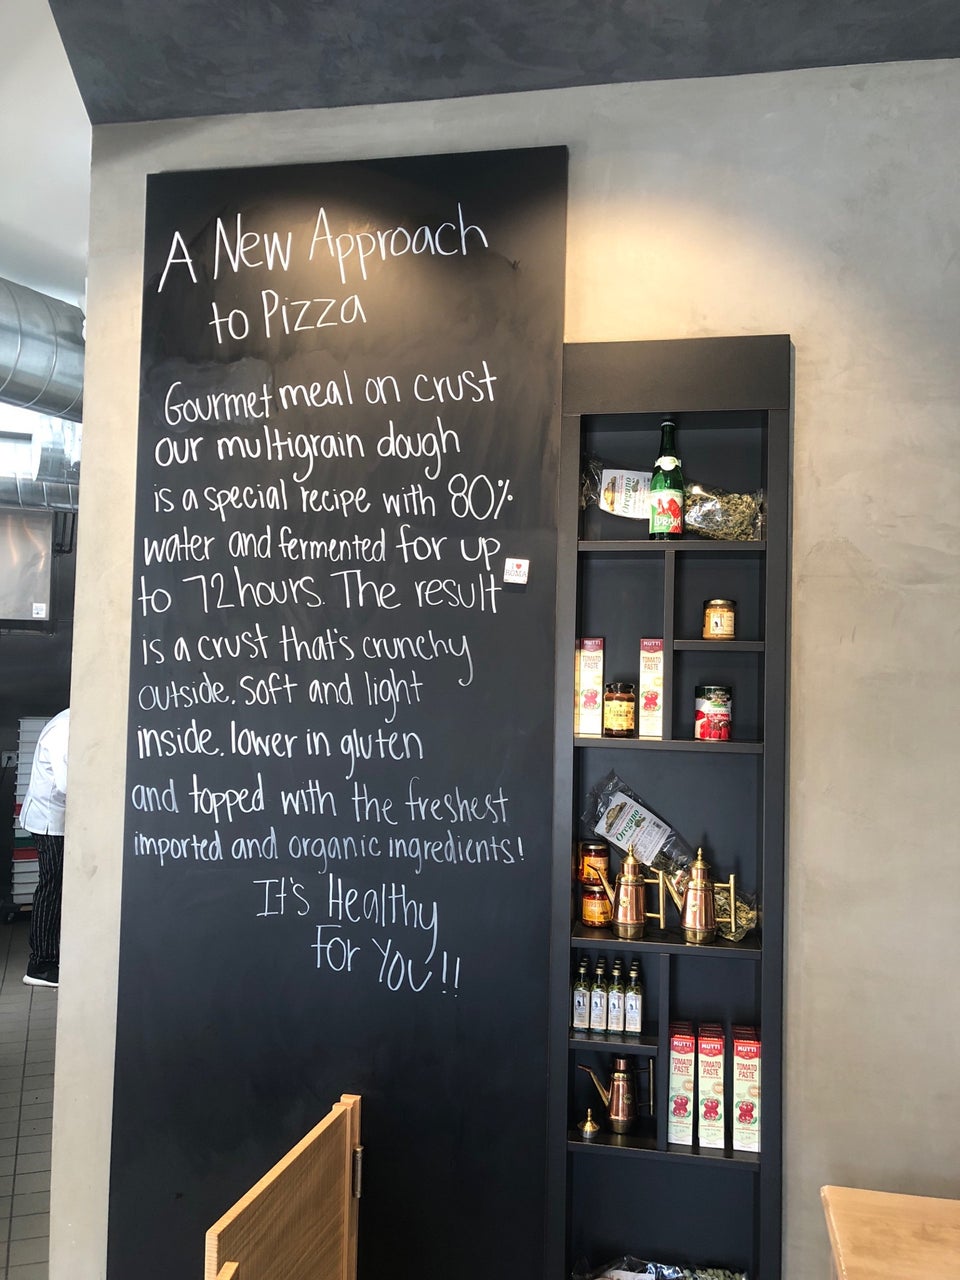 A New Approach
to Pizza
Gourmet meal on crust
our multigrain dough
is a special recipe with 80%
water and fermented for up
to 72 hours. The result
is a crust that's crunchy
outside. soft and light
inside. lower in gluten
and topped with the freshest
imported and organic ingredients!
It's Healthy
For You!!
I ♥
ROMA
Oregano
MUTTI
TOMATO
PASTE
MUTTI
TOMATO
PASTE
Oregano
MUTTI
TOMATO
PASTE
MUTTI
TOMATO
PASTE
MUTTI
TOMATO
PASTE